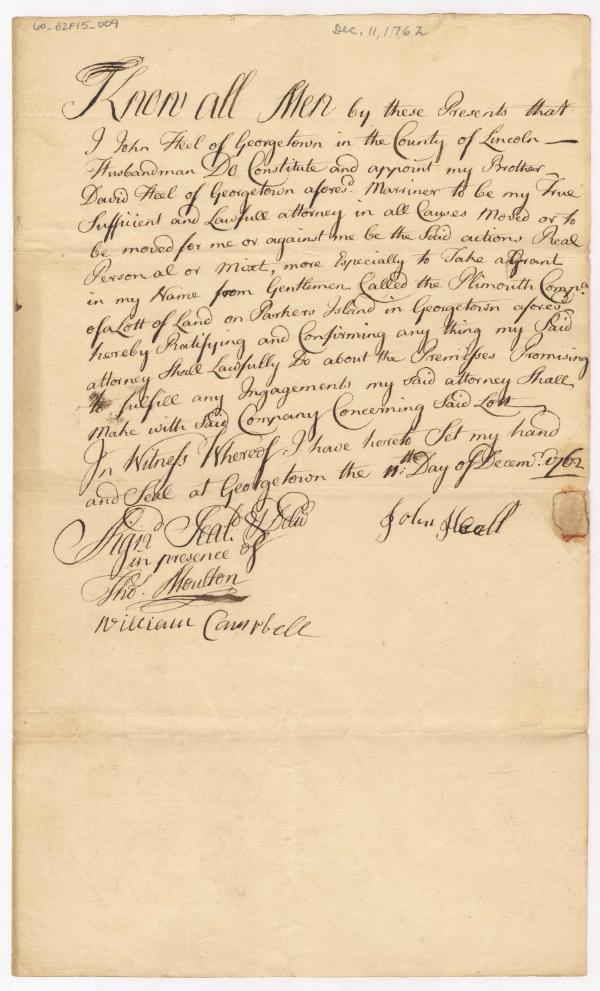 60-B2F15-009
Dec. 11, 1762
Know all Men by these Presents that
I John Heel of Georgetown in the County of Lincoln
Husbandman Do Constitute and appoint my Brother
David Heel of Georgetown afores.d Marriner to be my True
Sufficient and Lawfull attorney in all Causes moved or to
be moved for me or against me be the Said actions Real
Personal or Mixt, more Especially to Take a Grant
in my Name from Gentlemen Called the Plimouth Compa.
of a Lott of Land on Parkers Island in Georgetown afores.d
hereby Ratifying and Confirming any thing my Said
attorney Shall Lawfully Do about the Premisses Promising
to fulfill any Ingagements my Said attorney Shall
Make with Said Company Concerning Said Lott
In Witness Whereof I have hereto Set my hand
and Seal at Georgetown the 11th: Day of Decemr. 1762
Sign'd Seal'd & Deliv'd
in presence of
John Heall
Tho.s Moulton
William Campbell